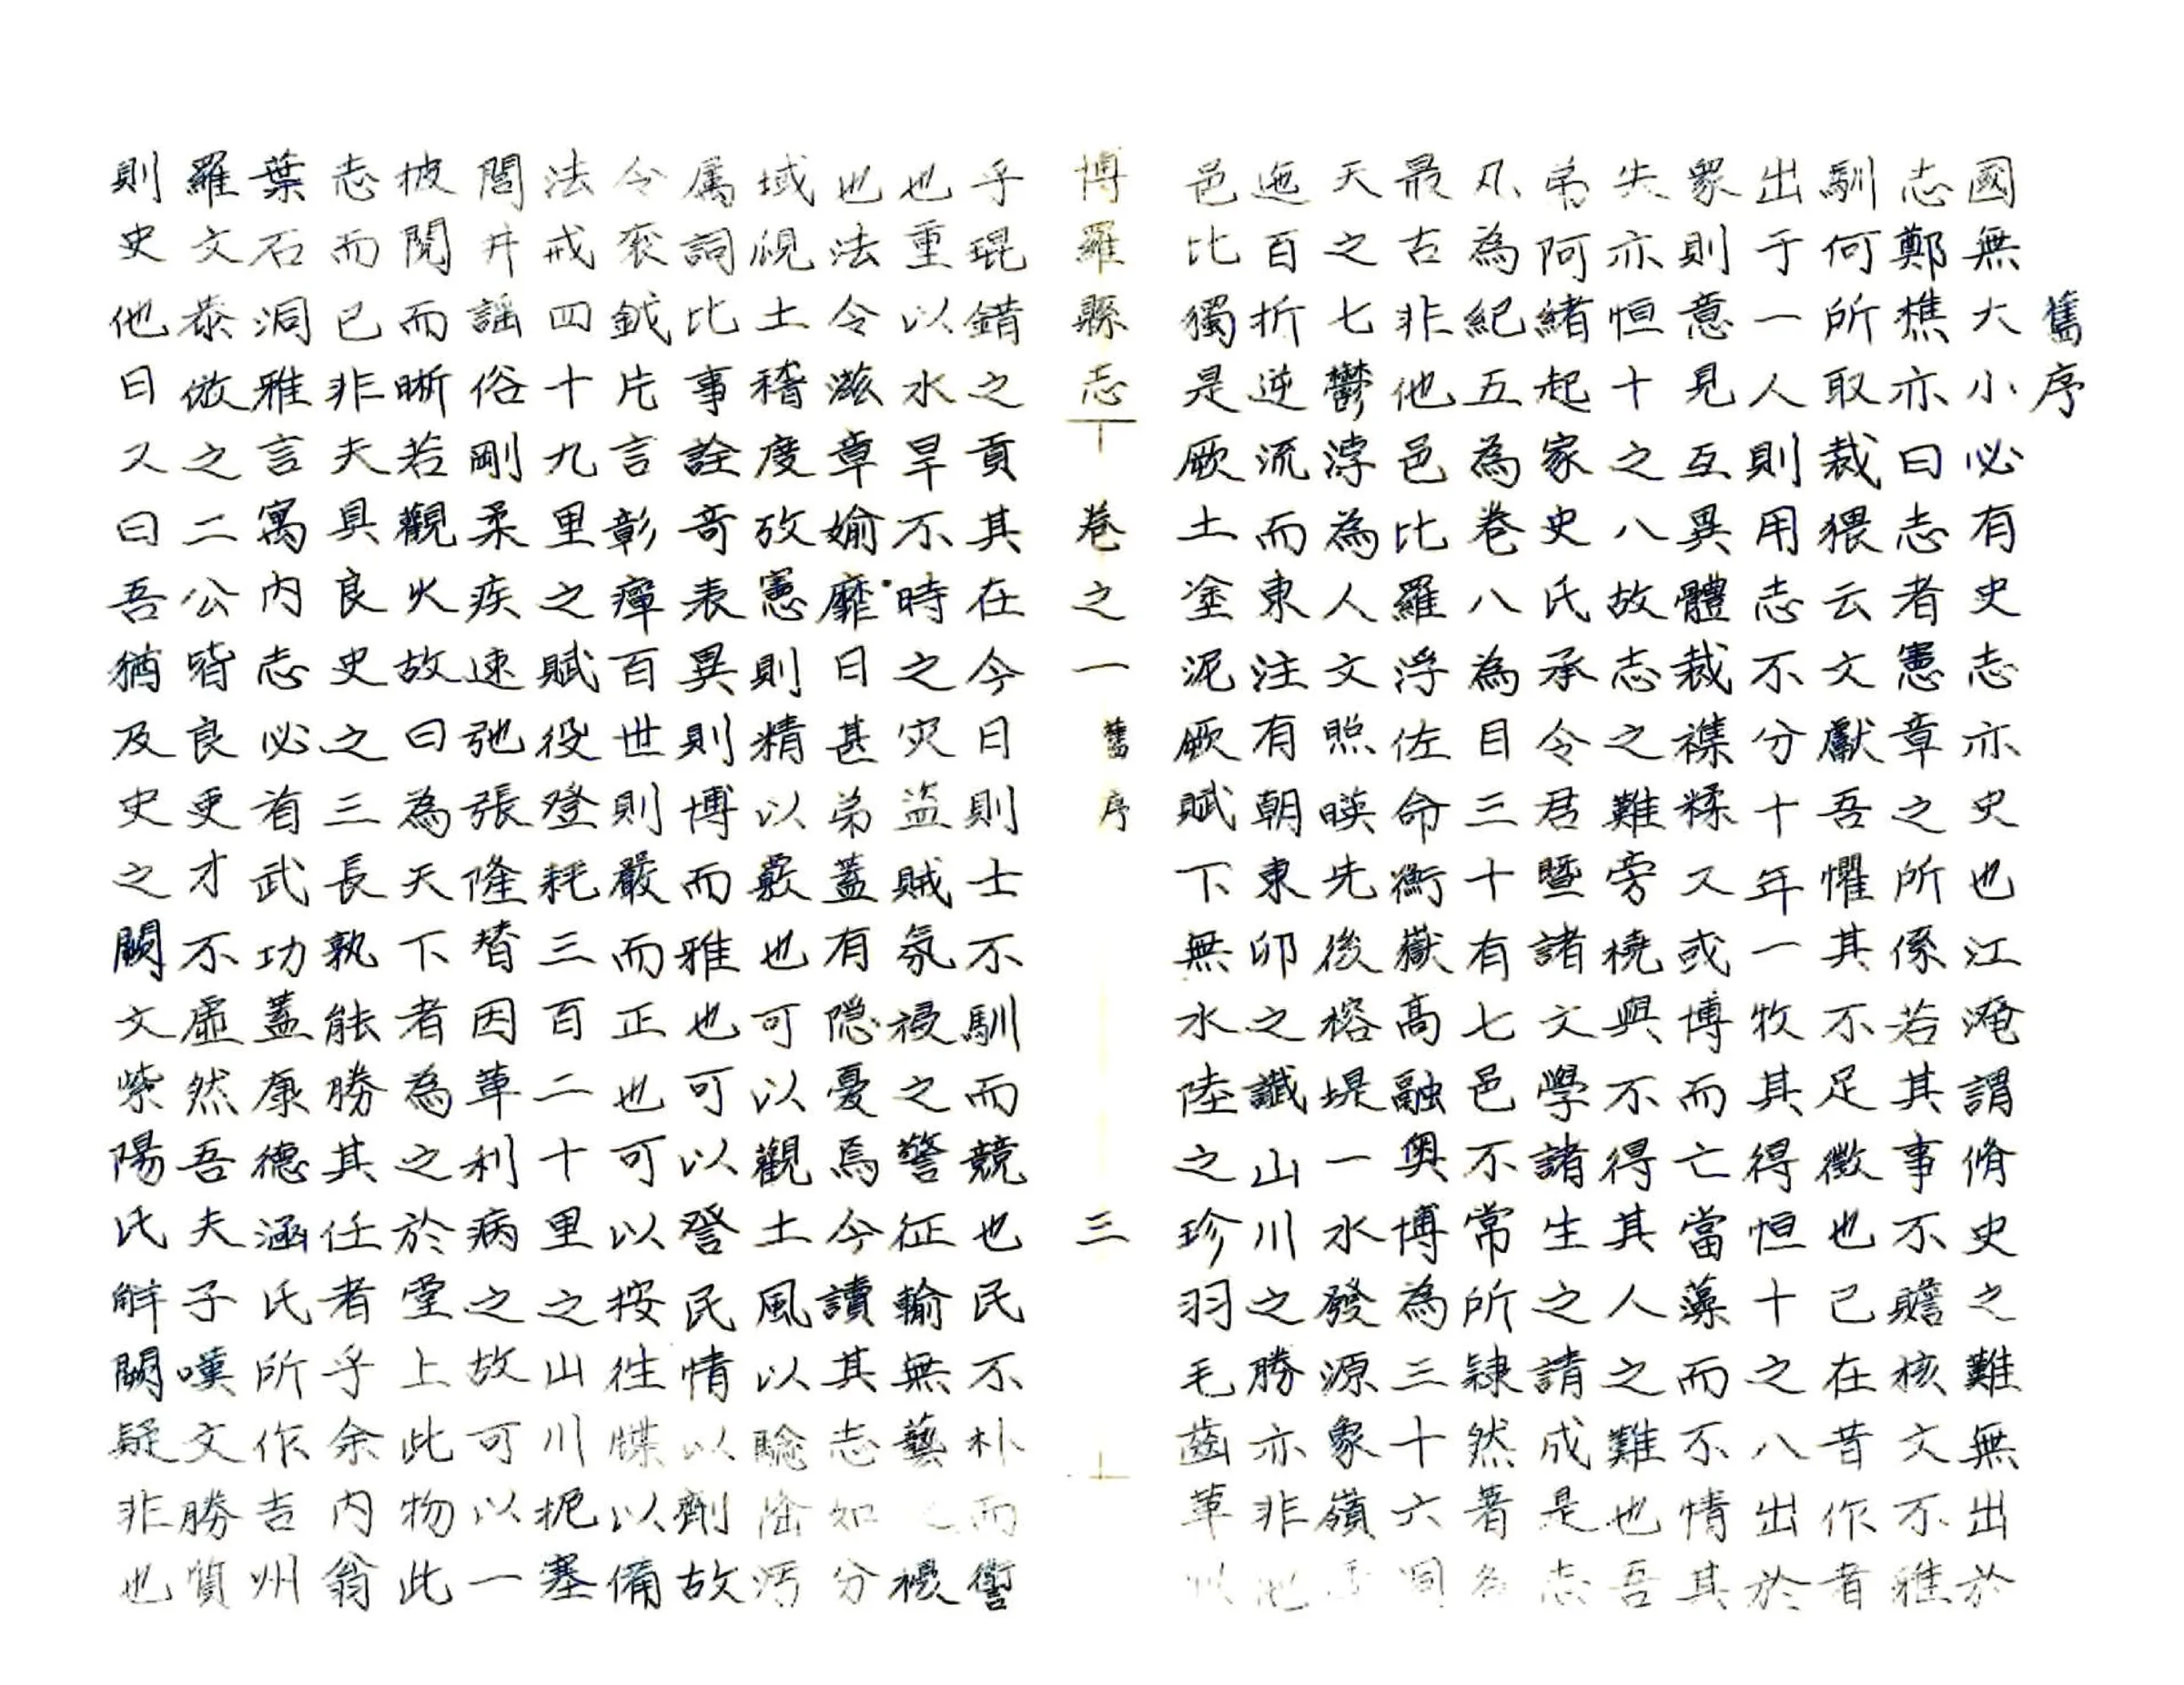 舊序
國無大小必有史志亦史也江淹謂脩史之難無出於
志鄭樵亦曰志者憲章之所係若其事不贍核文不雅
馴何所取裁猥云文獻吾懼其不足徵也已在昔作者
出于一人則用志不分十年一牧其得恒十之八出於
衆則意見互異體裁襍糅又或博而亡當藻而不情其
失亦恒十之八故志之難旁橈與不得其人之難也吾
弟阿緒起家史氏承令君暨諸文學諸生之請成是志
凡為紀五為卷八為目三十有七邑不常所隸然著名
最古非他邑比羅浮佐命衡嶽高融奧博為三十六洞
天之七鬱浡為人文照暎先後榕堤一水發源象嶺
迤百折逆流而東注有朝東卯之讖山川之勝亦非他
邑比獨是厥土塗泥厥賦下無水陸之珍羽毛齒革以
博羅縣志 卷之一 舊序 三
乎琨錯之貢其在今日則士不馴而競也民不朴而衛
也重以水旱不時之灾盜賊氛祲之警征輸無藝之
也法令滋章婾靡日甚弟蓋有隱憂焉今讀其志如分
域覗土稽度攷憲則精以覈也可以觀土風以驗淦污
属詞比事詮奇表異則博而雅也可以詧民情以劑故
令衮鉞片言彰癉百世則嚴而正也可以按徃牒以備
法戒四十九里之賦役登耗三百二十里之山川扼塞
閭井謡俗剛柔疾速弛張隆替因革利病之故可以一
披閱而晰若觀火故曰為天下者為之於堂上此物此
志而已非夫具良史之三長孰能勝其任者乎余內翁
葉石洞雅言寓內志必首武功蓋康德涵氏所作吉州
羅文泰倣之二公皆良吏才不虛然吾夫子嘆文勝質
則史他日又曰吾猶及史之闕文紫陽氏觧闕疑非也